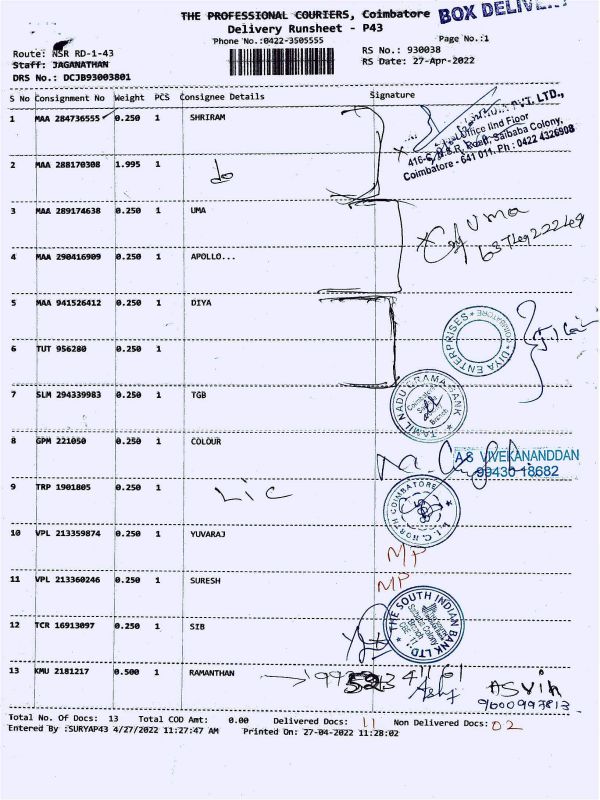 THE PROFESSIONAL COURIERS, Coimbatore
BOX DELIVERY
Delivery Runsheet - P43
Phone No.:0422-3505555
Page No.:1
Route: NSR RD-1-43
RS No.: 930038
Staff: JAGANATHAN
RS Date: 27-Apr-2022
DRS No.: DCJB93003801
S No Consignment No Weight PCS Consignee Details Signature
1 MAA 284736555 0.250 1 SHRIRAM
PVT. LTD.,
Office IInd Floor
Saibaba Colony,
Coimbatore - 641 011. Ph : 0422 4326908
2 MAA 288170308 1.995 1 do
3 MAA 289174638 0.250 1 UMA
Uma
4 MAA 290416909 0.250 1 APOLLO...
5 MAA 941526412 0.250 1 DIYA
DIYA ENTERPRISES * COIMBATORE *
6 TUT 956280 0.250 1
7 SLM 294339983 0.250 1 TGB
TAMIL NADU GRAMA BANK
Coimbatore
Branch
8 GPM 221050 0.250 1 COLOUR
A.S VIVEKANANDDAN
99430 18682
9 TRP 1901805 0.250 1 LIC
L.I.C. NORTH COIMBATORE
10 VPL 213359874 0.250 1 YUVARAJ MP
11 VPL 213360246 0.250 1 SURESH MP
12 TCR 16913097 0.250 1 SIB
THE SOUTH INDIAN BANK LTD
Saibaba Colony
Branch
13 KMU 2181217 0.500 1 RAMANTHAN
ASVIA
9600993813
Total No. Of Docs: 13 Total COD Amt: 0.00 Delivered Docs: 11 Non Delivered Docs: 02
Entered By :SURYAP43 4/27/2022 11:27:47 AM Printed On: 27-04-2022 11:28:02